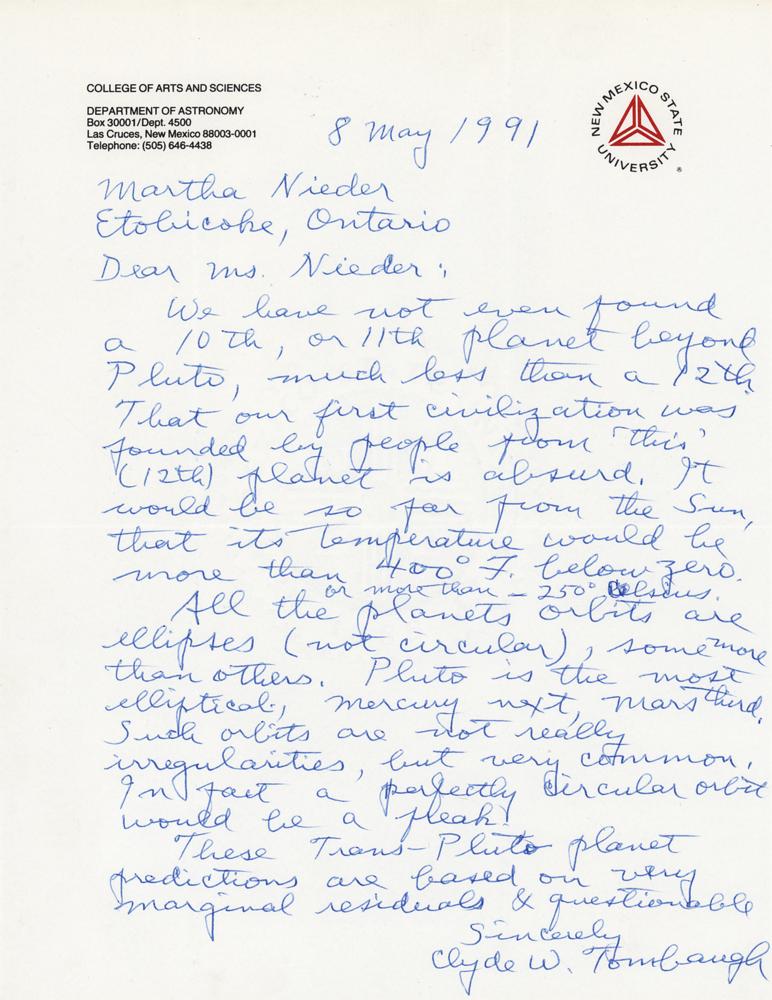 COLLEGE OF ARTS AND SCIENCES
DEPARTMENT OF ASTRONOMY
Box 30001/Dept. 4500
Las Cruces, New Mexico 88003-0001
Telephone: (505) 646-4438
NEW MEXICO STATE UNIVERSITY
®
8 May 1991
Martha Nieder
Etobicoke, Ontario
Dear Ms. Nieder:
We have not even found
a 10th, or 11th planet beyond
Pluto, much less than a 12th.
That our first civilization was
founded by people from 'this'
(12th) planet is absurd. It
would be so far from the Sun,
that its temperature would be
more than 400° F. below zero.
or more than -250° Celsius.
All the planets orbits are
ellipses (not circular), some more
than others. Pluto is the most
elliptical, Mercury next, Mars third.
Such orbits are not really
irregularities, but very common.
In fact a perfectly circular orbit
would be a fleak!
These Trans-Pluto planet
predictions are based on very
marginal residuals & questionable
Sincerely
Clyde W. Tombaugh